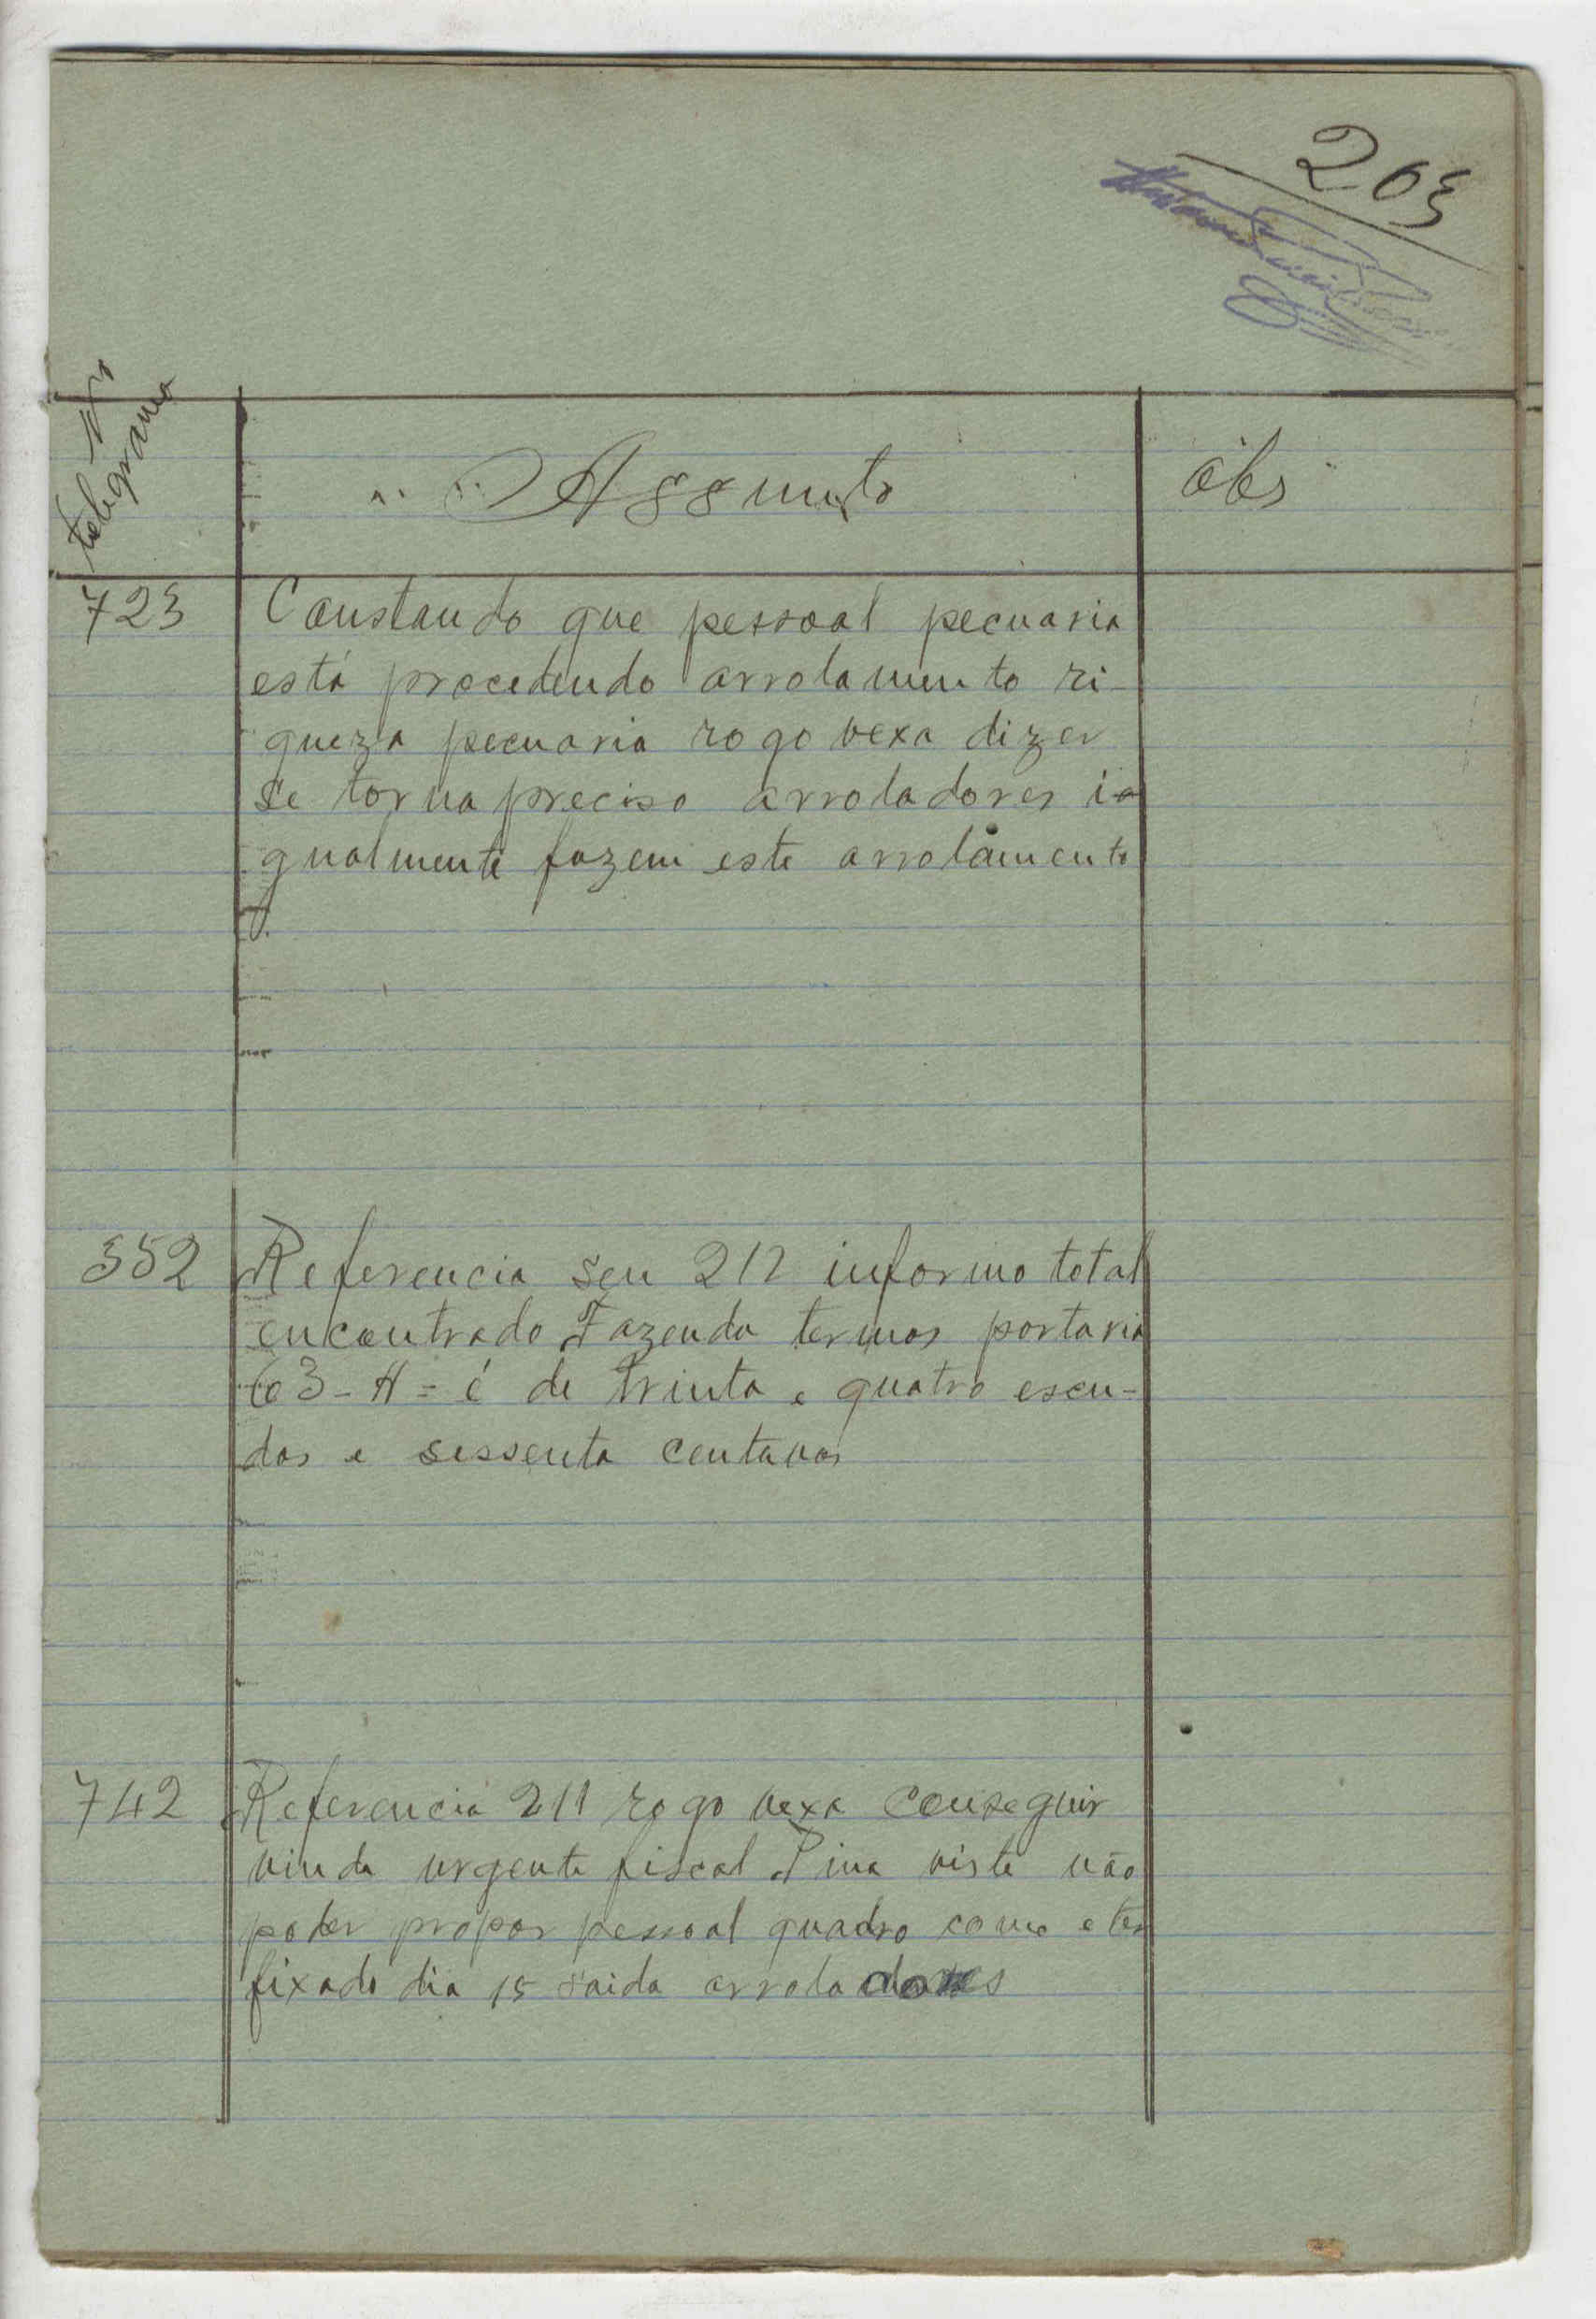 203
Nro
telegrama
Assunto
obs
723
Constando que pessoal pecuaria
está procedendo arrolamento ri-
queza pecuaria rogo vexa dizer
se torna preciso arroladores i-
gualmente fazem este arrolamento
552
Referencia seu 212 informo total
encontrado Fazenda termos portaria
63-H = é de trinta e quatro escu-
dos e sessenta centavos
742
Referencia 211 rogo vexa conseguir
vinda urgente fiscal Pina visto não
poder propor pessoal quadro como e ter
fixado dia 15 saida arroladores